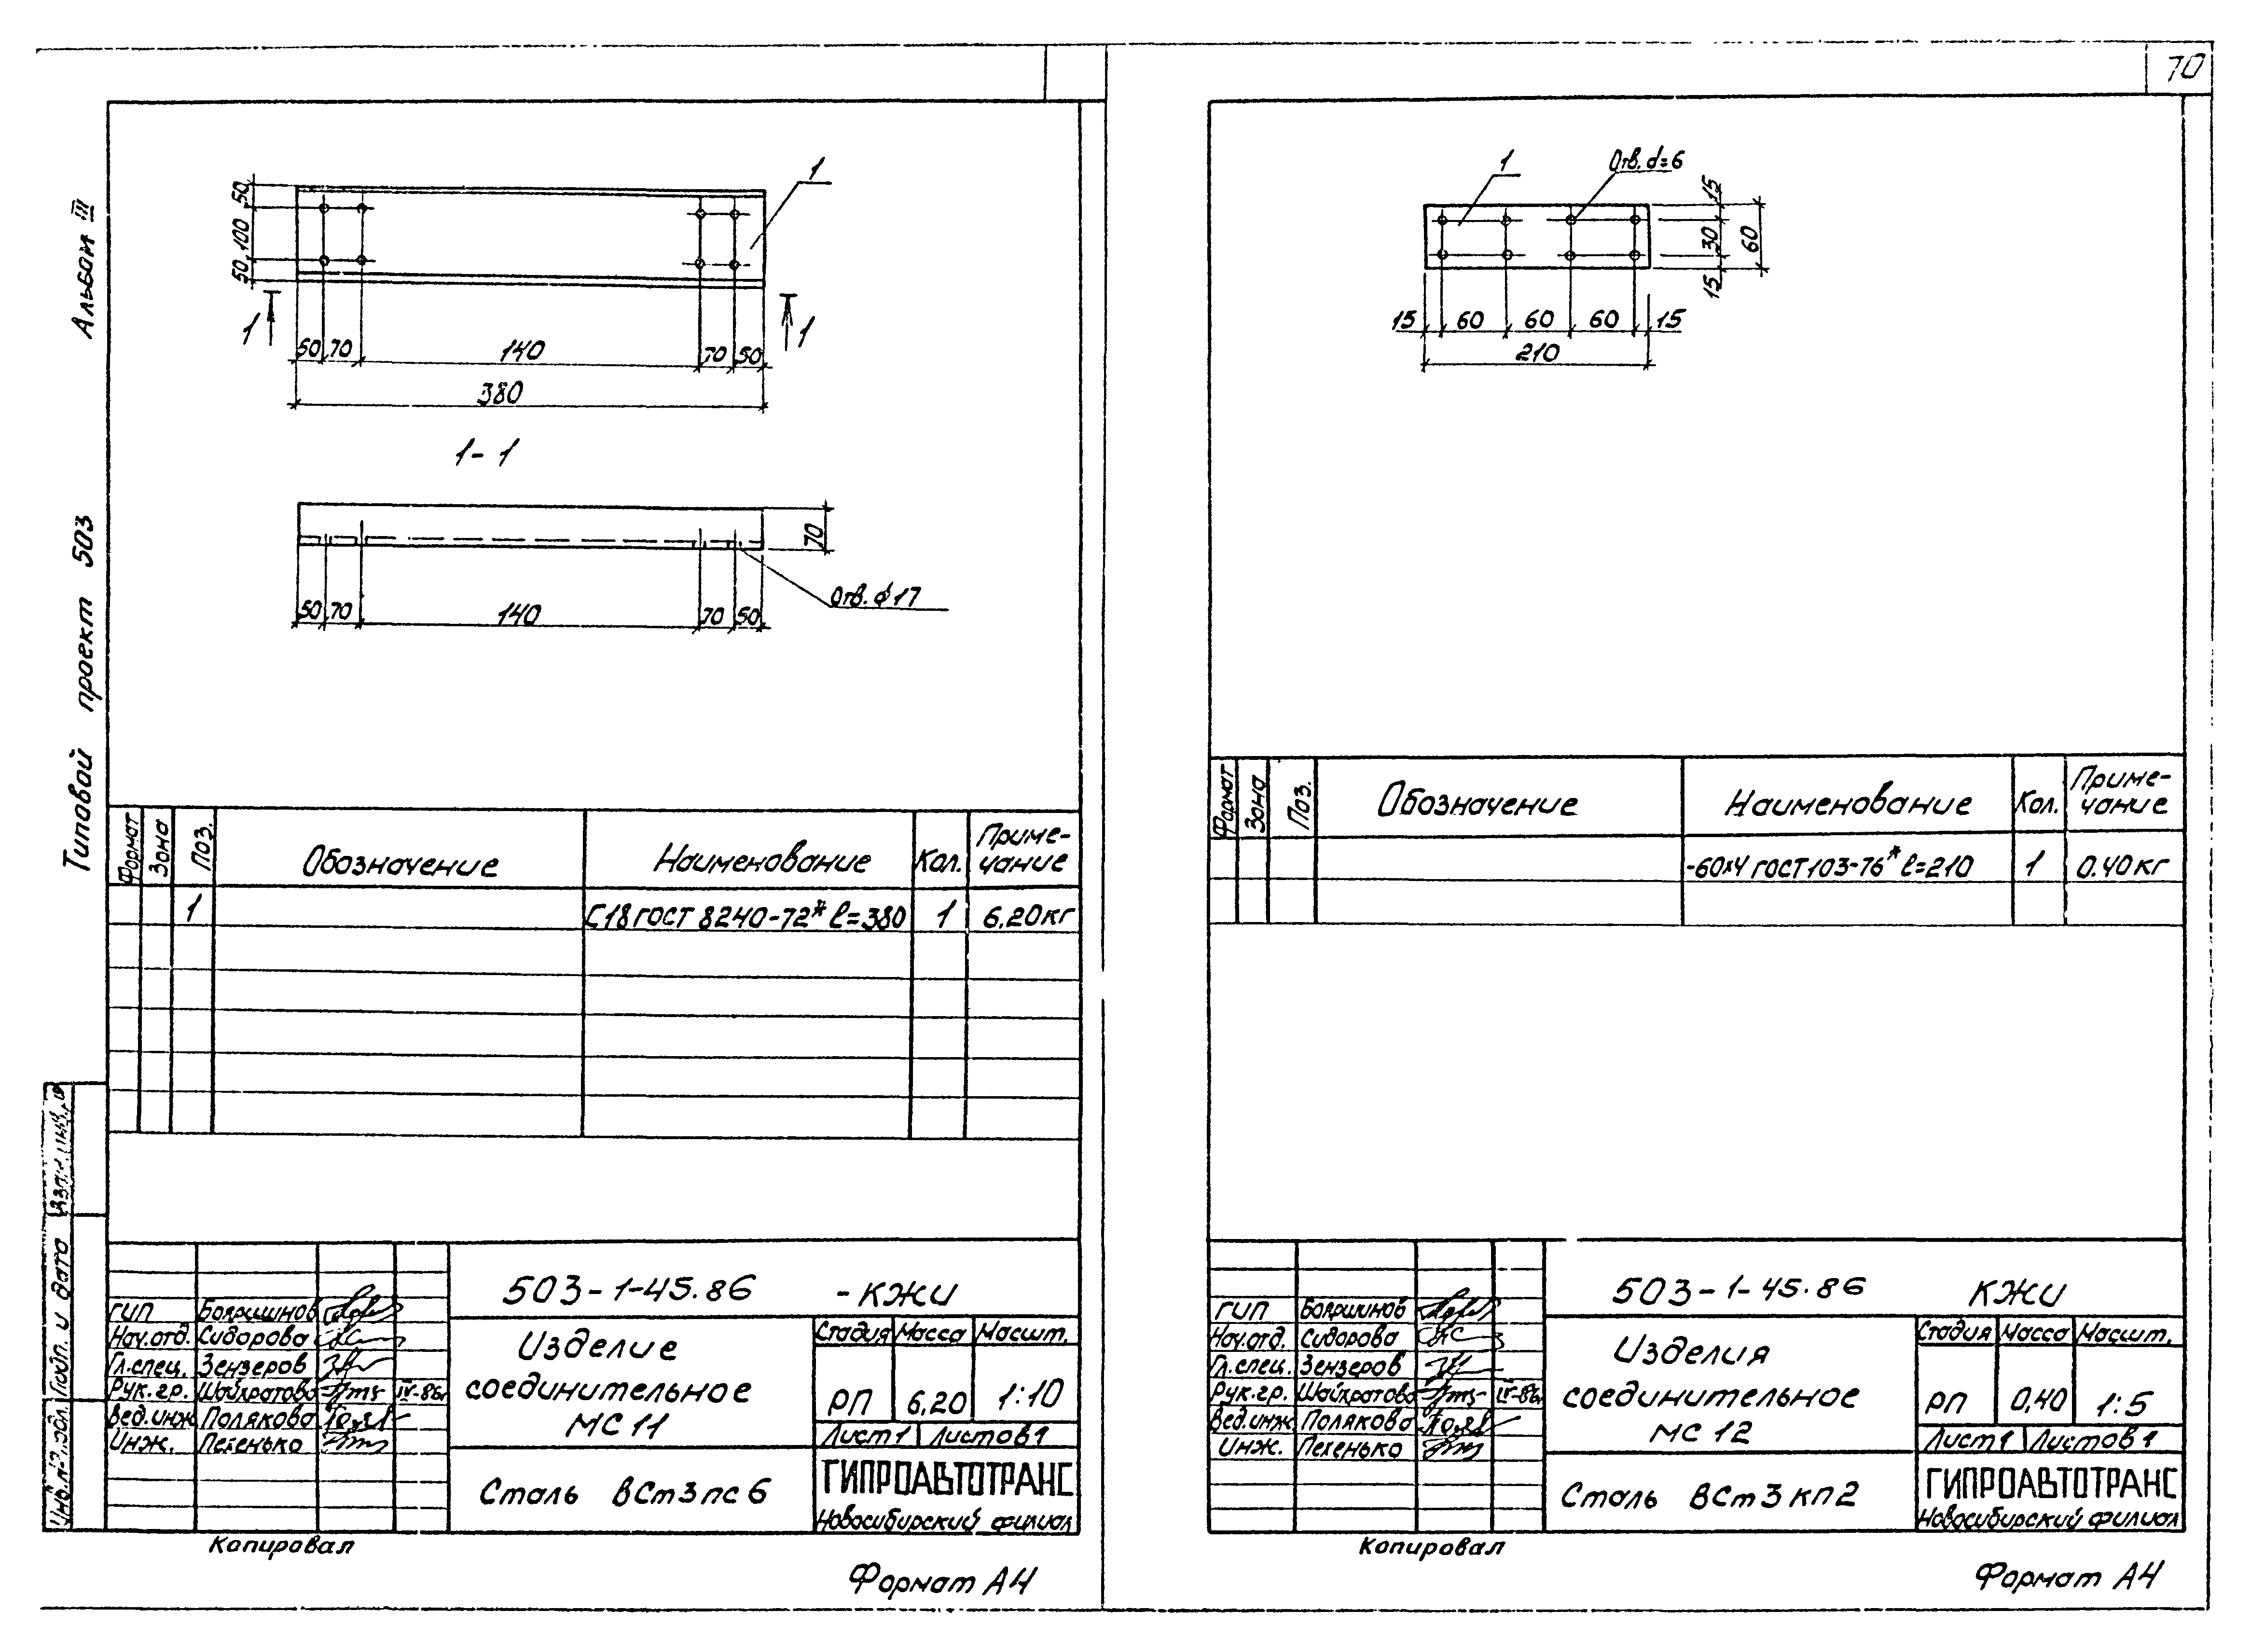 70
Альбом III
Типовой проект 503
1
50
100
50
1
1
50 70 140 70 50
380
1-1
70
Отв. ϕ17
50 70 140 70 50
Формат
Зона
Поз.
Обозначение
Наименование
Кол.
Приме-
чание
1 С18 ГОСТ 8240-72* ℓ=380 1 6,20кг
503-1-45.86 -КЖИ
ГИП Бояршинов
Нач.отд. Сидорова
Гл.спец. Зензеров
Рук.гр. Шайхратова IV-86г
Вед.инж Полякова
Инж. Петенько
Изделие
соединительное
МС 11
Стадия Масса Масшт.
РП 6,20 1:10
Лист 1 Листов 1
Сталь ВСт3пс6
ГИПРОАВТОТРАНС
Новосибирский филиал
Подп. и дата
Копировал
Формат А4
1
Отв. d=6
15
30
15
60
15 60 60 60 15
210
Формат
Зона
Поз.
Обозначение
Наименование
Кол.
Приме-
чание
-60х4 ГОСТ103-76* ℓ=210 1 0.40кг
503-1-45.86 КЖИ
ГИП Бояршинов
Нач.отд. Сидорова
Гл.спец. Зензеров
Рук.гр. Шайхратова IV-86г
Вед.инж. Полякова
Инж. Петенько
Изделия
соединительное
МС 12
Стадия Масса Масшт.
РП 0,40 1:5
Лист 1 Листов 1
Сталь ВСт3кп2
ГИПРОАВТОТРАНС
Новосибирский филиал
Копировал
Формат А4